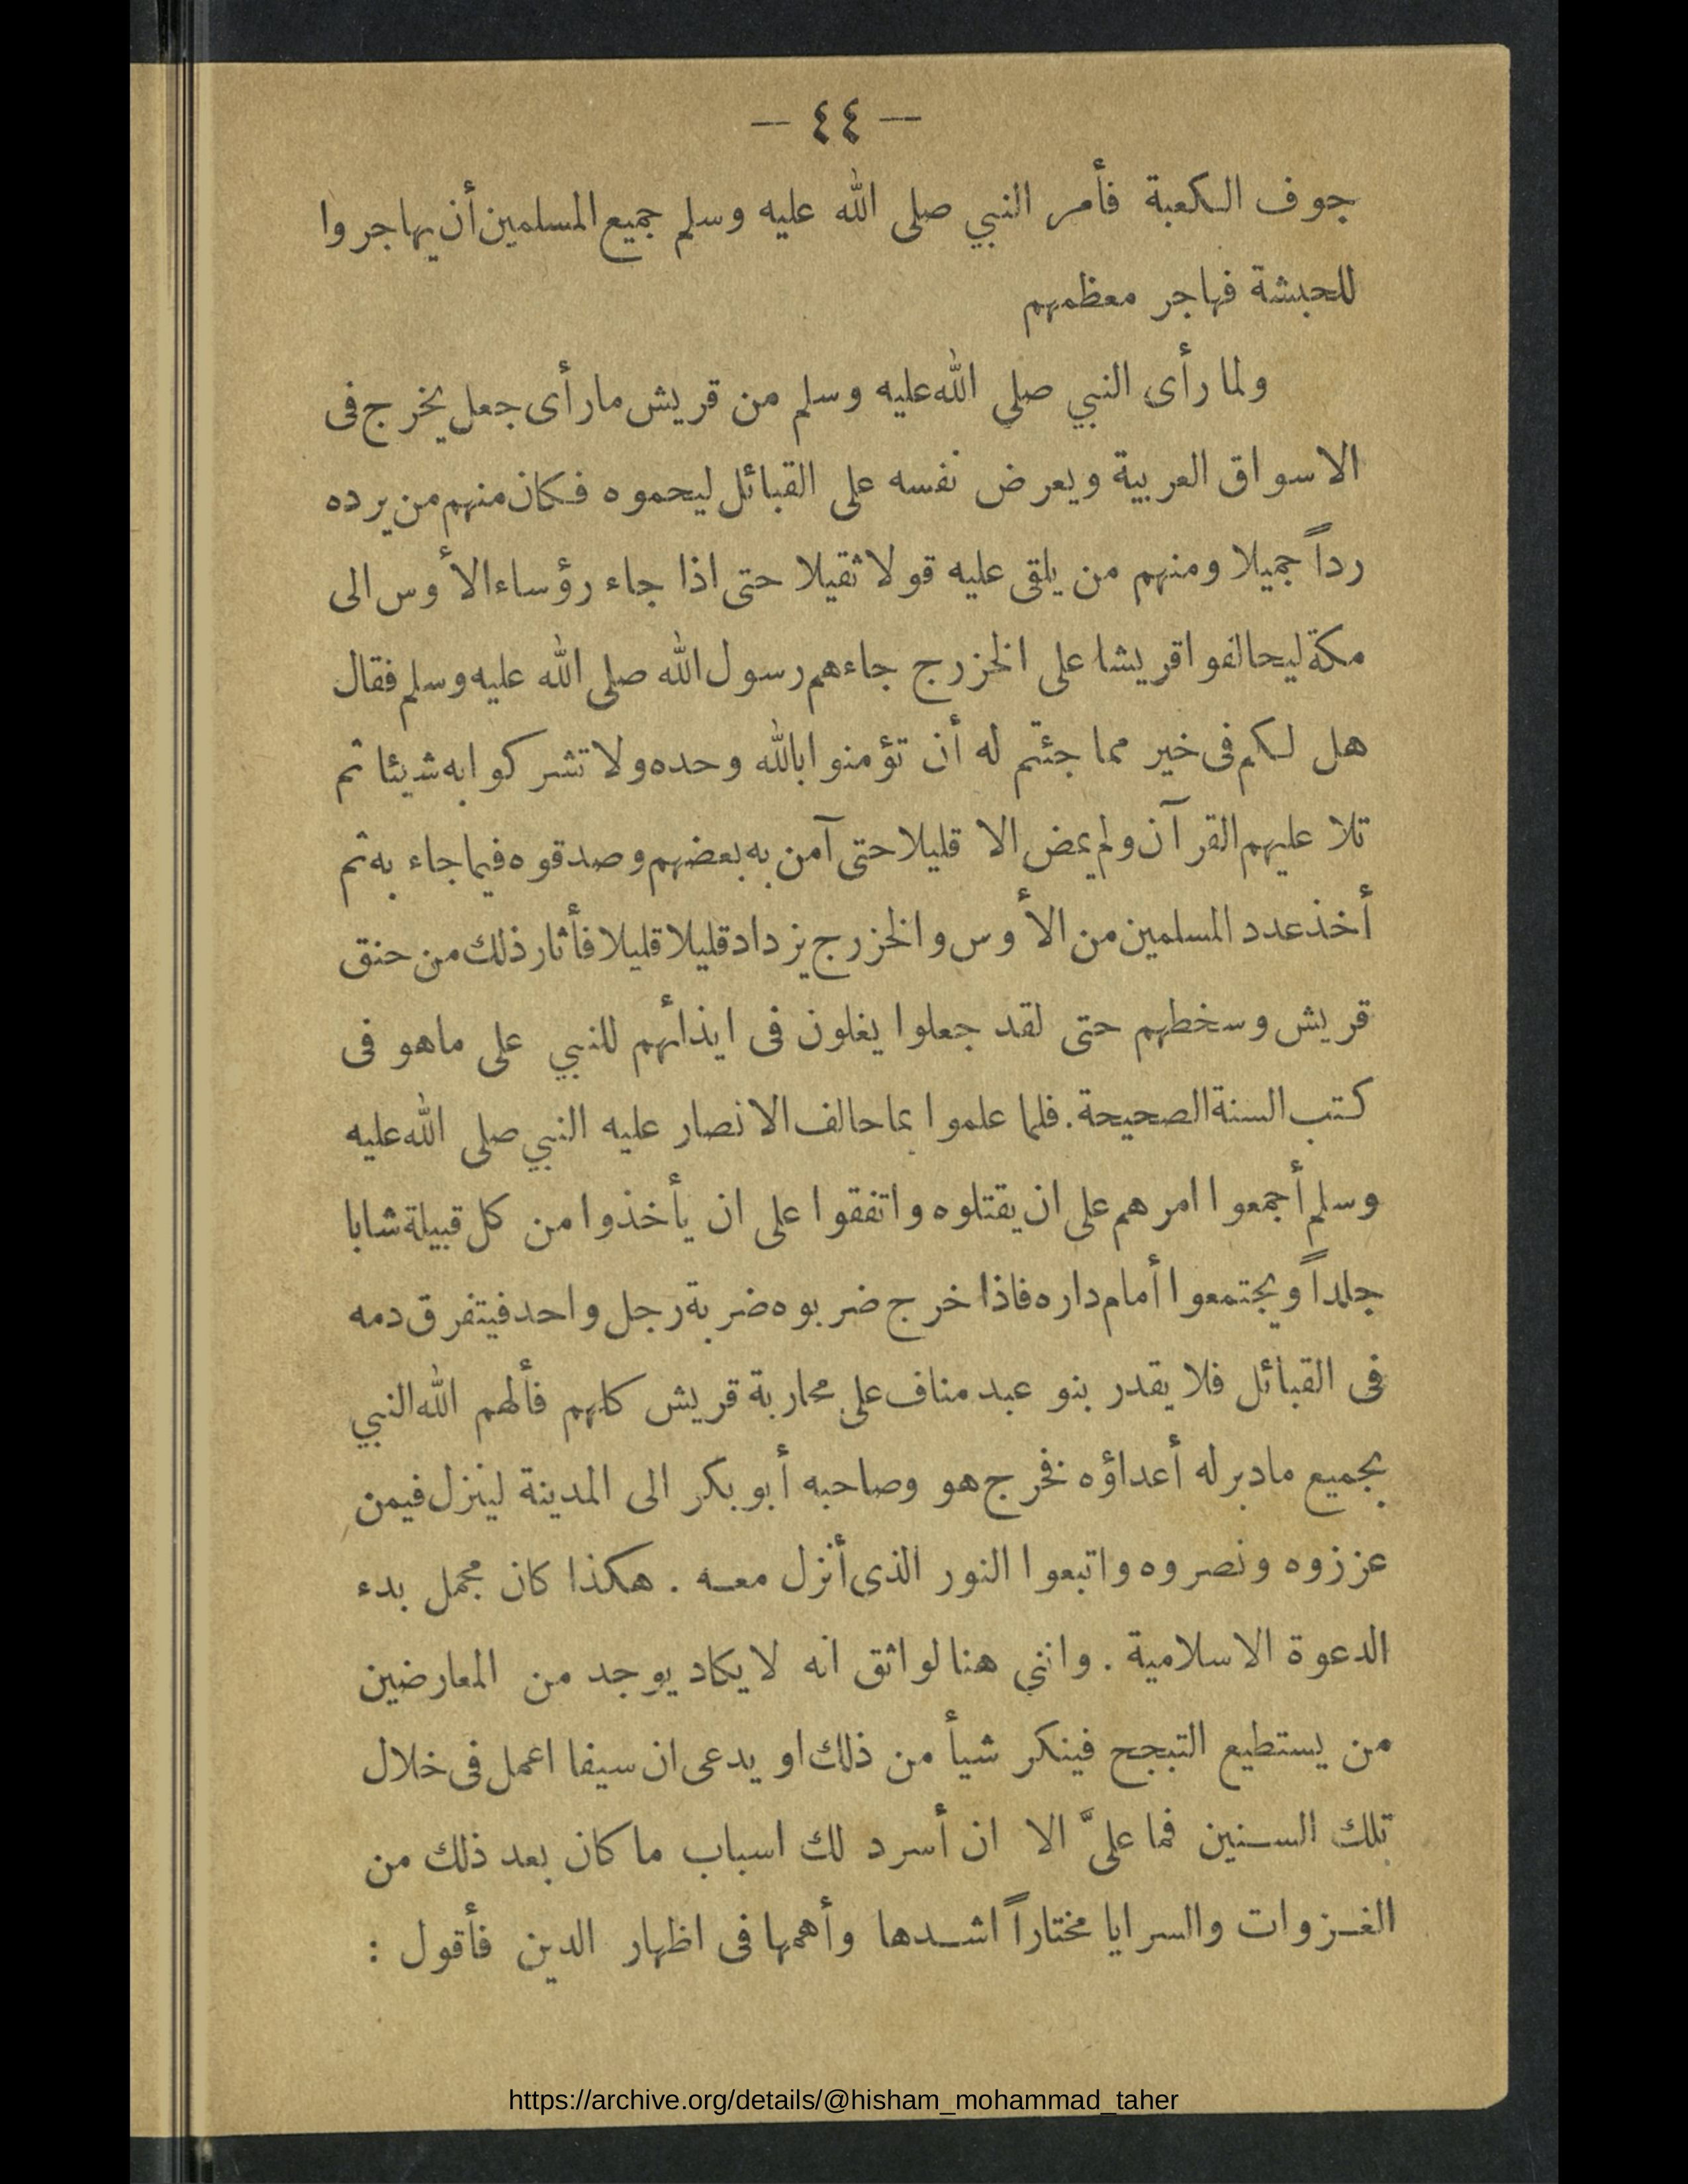 — ٤٤ —
جوف الكعبة فأمر النبي صلى الله عليه وسلم جميع المسلمين أن يهاجروا
للحبشة فهاجر معظمهم
ولما رأى النبي صلى الله عليه وسلم من قريش ما رأى جعل يخرج فى
الاسواق العربية ويعرض نفسه على القبائل ليحموه فكان منهم من يرده
رداً جميلا ومنهم من يلقى عليه قولا ثقيلا حتى اذا جاء رؤساء الأوس الى
مكة ليحالفوا قريشا على الخزرج جاءهم رسول الله صلى الله عليه وسلم فقال
هل لكم فى خير مما جئتم له أن تؤمنوا بالله وحده ولا تشركوا به شيئا ثم
تلا عليهم القرآن ولم يمض الا قليلا حتى آمن به بعضهم وصدقوه فيما جاء به ثم
أخذ عدد المسلمين من الأوس والخزرج يزداد قليلا قليلا فأثار ذلك من حنق
قريش وسخطهم حتى لقد جعلوا يغلون فى ايذائهم للنبي على ماهو فى
كتب السنة الصحيحة. فلما علموا بما حالف الانصار عليه النبي صلى الله عليه
وسلم أجمعوا امرهم على ان يقتلوه واتفقوا على ان يأخذوا من كل قبيلة شابا
جلداً ويجتمعوا أمام داره فاذا خرج ضربوه ضربة رجل واحد فيتفرق دمه
فى القبائل فلا يقدر بنو عبد مناف على محاربة قريش كلهم فألهم الله النبي
بجميع مادبر له أعداؤه فخرج هو وصاحبه أبو بكر الى المدينة لينزل فيمن
عززوه ونصروه واتبعوا النور الذى أنزل معه . هكذا كان مجمل بدء
الدعوة الاسلامية . وانني هنا لواثق انه لا يكاد يوجد من المعارضين
من يستطيع التبجح فينكر شيأ من ذلك او يدعى ان سيفا اعمل فى خلال
تلك السنين فما علىَّ الا ان أسرد لك اسباب ما كان بعد ذلك من
الغزوات والسرايا مختاراً اشدها وأهمها فى اظهار الدين فأقول :
https://archive.org/details/@hisham_mohammad_taher